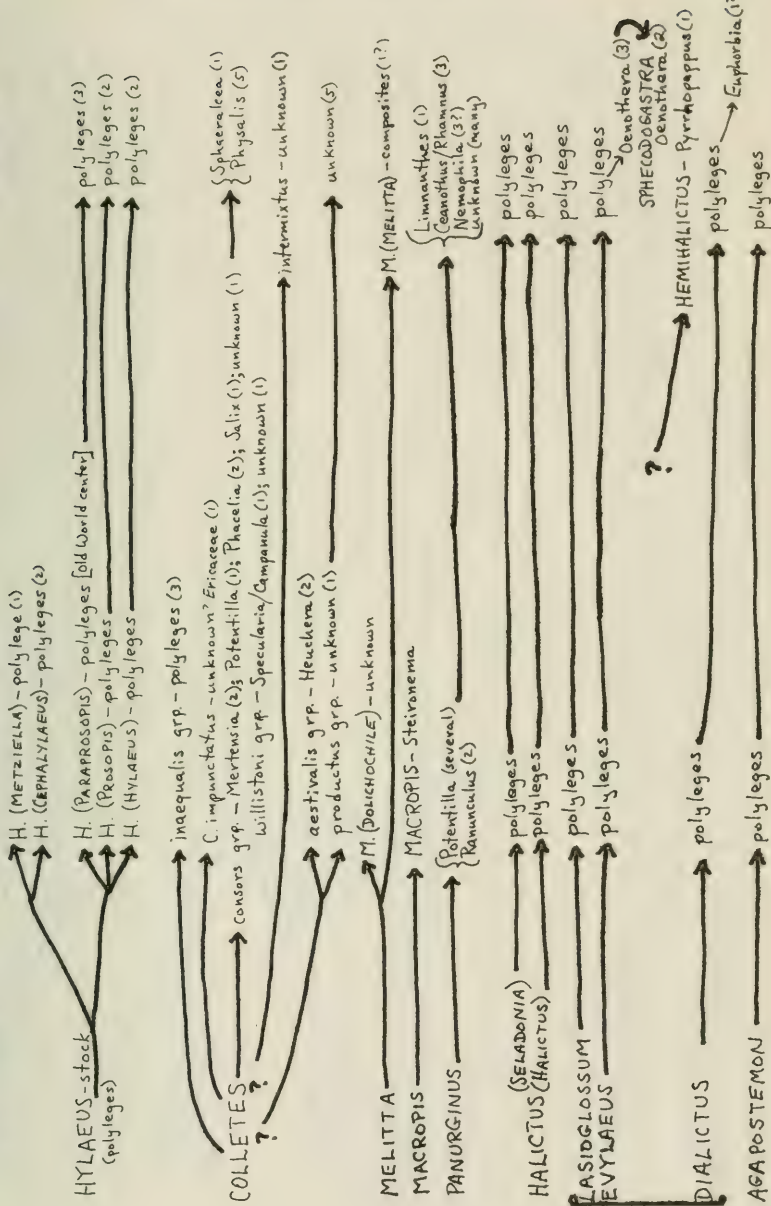 HYLAEUS-stock
(polyleges)
H. (METZIELLA) - polylege (1)
H. (CEPHALYLAEUS) - polyleges (2)
H. (PARAPROSOPIS) - polyleges [Old World center]
polyleges (3)
H. (PROSOPIS) - polyleges
polyleges (2)
H. (HYLAEUS) - polyleges
polyleges (2)
COLLETES
?
?
inaequalis grp. - polyleges (3)
C. impunctatus - unknown? Ericaceae (1)
Consors grp. - Mertensia (2); Potentilla (1); Phacelia (2); Salix (1); unknown (1)
{Sphaeralcea (1)
{Physalis (5)
Willistoni grp. - Specularia/Campanula (1); unknown (1)
intermixtus - unknown (1)
aestivalis grp. - Heuchera (2)
productus grp. - unknown (1)
unknown (5)
MELITTA
M. (DOLICHOCHILE) - unknown
M. (MELITTA) - composites (1?)
MACROPIS
MACROPIS - Steironema
PANURGINUS
{Potentilla (several)
Ranunculus (2)
{Limnanthes (1)
Ceanothus/Rhamnus (3)
Nemophila (3?)
unknown (many)
HALICTUS (SELADONIA)
(HALICTUS)
polyleges
polyleges
polyleges
polyleges
LASIOGLOSSUM
polyleges
polyleges
EVYLAEUS
polyleges
polyleges
Oenothera (3)
SPHECODOGASTRA
Oenothera (2)
?
HEMIHALICTUS - Pyrrhopappus (1)
DIALICTUS
polyleges
polyleges
Euphorbia (1?
AGAPOSTEMON
polyleges
polyleges